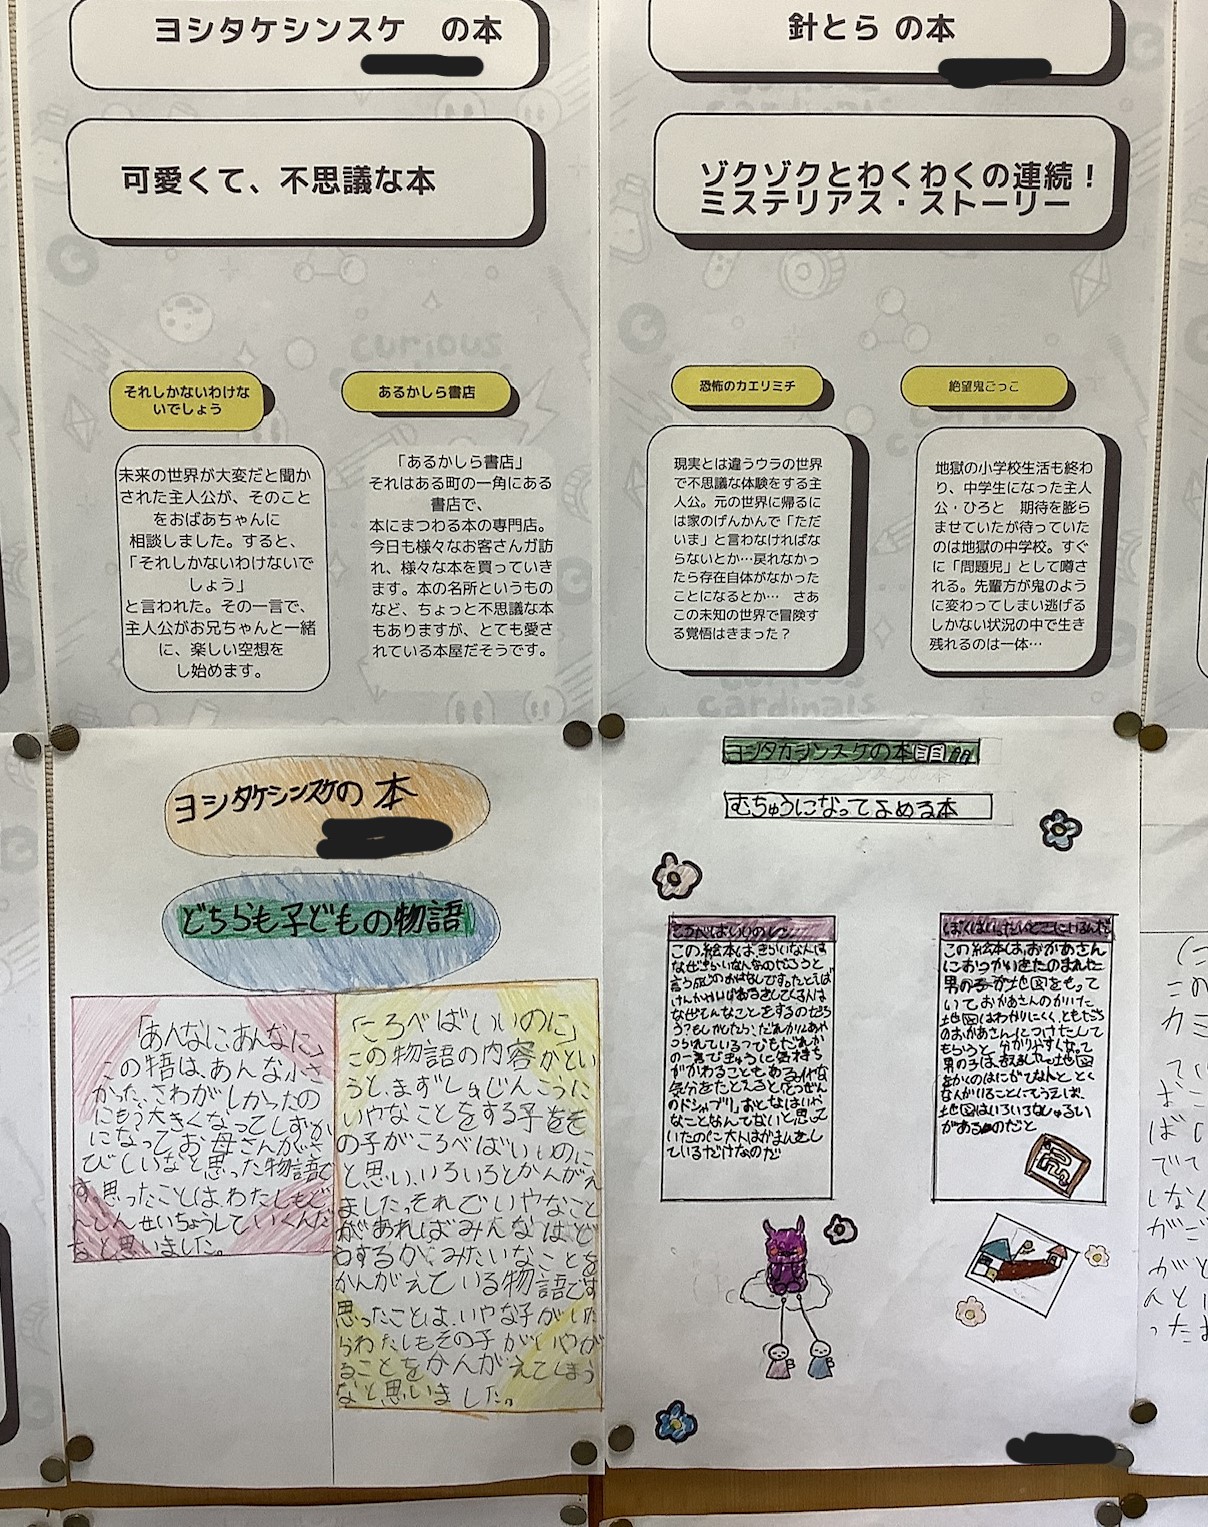 ヨシタケシンスケ　の本
可愛くて、不思議な本
それしかないわけな
いでしょう
未来の世界が大変だと聞か
された主人公が、そのこと
をおばあちゃんに
相談しました。すると、
「それしかないわけないで
しょう」
と言われた。その一言で、
主人公がお兄ちゃんと一緒
に、楽しい空想を
し始めます。
あるかしら書店
「あるかしら書店」
それはある町の一角にある
書店で、
本にまつわる本の専門店。
今日も様々なお客さんガ訪
れ、様々な本を買っていき
ます。本の名所というもの
など、ちょっと不思議な本
もありますが、とても愛さ
れている本屋だそうです。
針とら の本
ゾクゾクとわくわくの連続！
ミステリアス・ストーリー
恐怖のカエリミチ
現実とは違うウラの世界
で不思議な体験をする主
人公。元の世界に帰るに
は家のげんかんで「ただ
いま」と言わなければな
らないとか…戻れなかっ
たら存在自体がなかった
ことになるとか…　さあ
この未知の世界で冒険す
る覚悟はきまった？
絶望鬼ごっこ
地獄の小学校生活も終わ
り、中学生になった主人
公・ひろと　期待を膨ら
ませていたが待っていた
のは地獄の中学校。すぐ
に「問題児」として噂さ
れる。先輩方が鬼のよう
に変わってしまい逃げる
しかない状況の中で生き
残れるのは一体…
curious
cardinals
ヨシタケシンスケの本
どちらも子どもの物語
「あんなにあんなに」
この物語は、あんな小さ
かった、さわがしかったの
にもう大きくなってしずか
になってお母さんがさ
びしいなと思った物語で
す。思ったことは、わたしもど
んどんせいちょうしていくんだ
なと思いました。
「ころべばいいのに」
この物語の内容がとい
うと、まずしゅじんこうに
いやなことをする子をそ
の子がころべばいいのに
と思い、いろいろとかんがえ
ました。それでいやなこと
があればみんなはど
うするか、みたいなことを
かんがえている物語です
思ったことは、いやな子がいた
らわたしもその子がいやが
ることをかんがえてしまう
なと思いました。
ヨシタカシンスケの本
むちゅうになってよめる本
ころべばいいのに
この絵本は、きらいな人は
なぜきらいなんなのだろうと
なぜそんなことをするのだろ
がかわることもある。いやな
気分をたとえると、とつぜん
のドシャブリ」おとなはいや
なことなんてないと思って
いたのに大人はがまんをし
ているだけなのだ
ぼくはいったいどこにいるんだ
この絵本は、おかあさん
におつかいをたのまれた
男の子が地図をもって
いて、おかあさんのかいた
地図はわかりにくく、ともだち
のおかあさんにつけたして
もらうと、分かりやすくなって
地図はいろいろなしゅるい
があるのだと